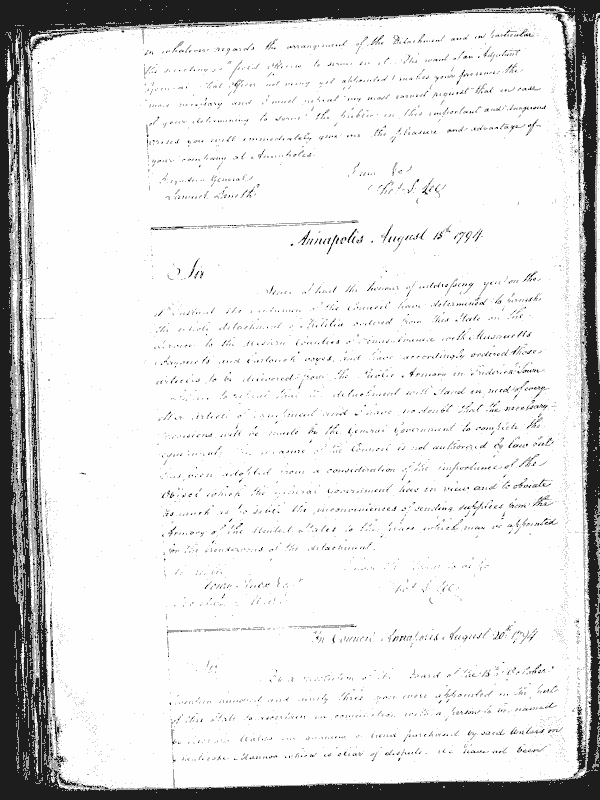 in whatever regards the arrangement of the Detachment and in particular
the selecting of field officers to serve in it. The want of an Adjutant
General that officer not being yet appointed makes your presence the
more necessary and I must repeat my most earnest request that in case
of your determining to serve the public in this important and dangerous
crisis you will immediately give me the pleasure and advantage of
your company at Annapolis.
I am &c
Brigadier General
Samuel Smith
Thos. S. Lee
Annapolis August 15th 1794
Sir
Since I had the honour of addressing you on the
Instant the of the Council have determined to furnish
the whole detachment of Militia ordered from this State on the
Service to the Western Counties of Pennsylvania with Musquetts
Bayonets and Cartouch boxes, and have accordingly ordered those
articles to be delivered from the Public Armory in Frederick Town
to repeat that the detachment will stand in need of every
other article of equipment and I have no doubt that the necessary
provisions will be made by the General Government to complete the
equipment. The measure of the Council is not authorized by law but
has been adopted from a consideration of the importance of the
Object which the general Government has in view and to obviate
as much as possible the inconveniences of sending supplies from the
Armory of the United States to the place which may be appointed
for the rendezvous of the detachment.
Henry Knox Esqr
Thos. S. Lee
In Council Annapolis August 20th 1794
Sir
By a resolution of the Board of the 15th October
Seventeen hundred and ninety three you were appointed on the part
of this State to ascertain in conjunction with a person to be named
by what quantity of land purchased by said in
Manor which is clear of dispute. We have not been